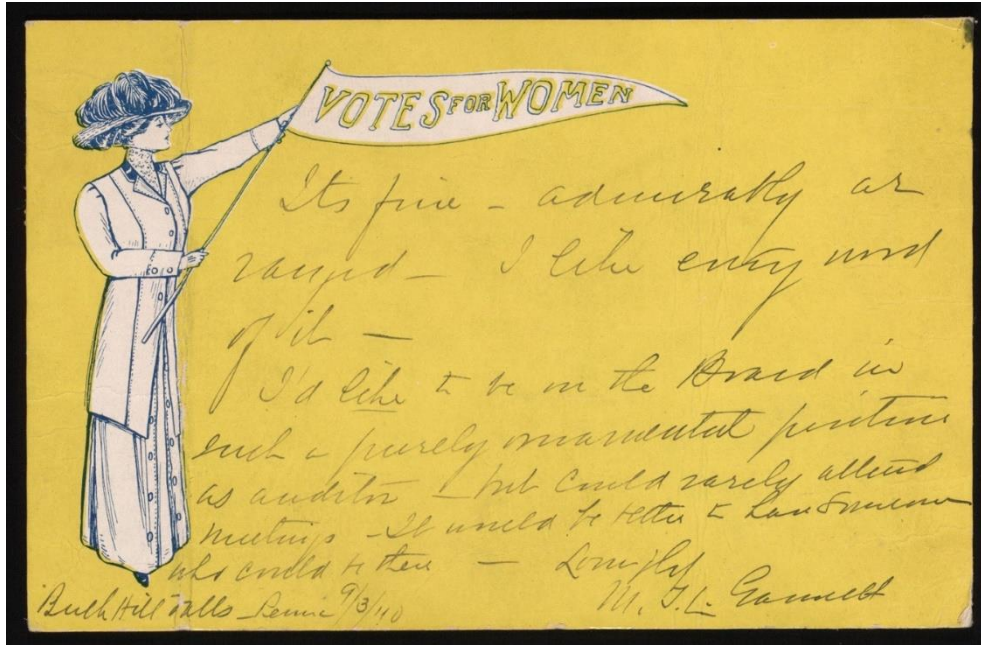 VOTES FOR WOMEN
Its fine – admirably ar
ranged – I like every word
of it –
I'd like to be on the Board in
such a purely ornamental position
as auditor – but could rarely attend
meetings – It would be better to have someone
who could be there – Lovingly
M. T. L. Gannett
Buck Hill Falls – Penna 9/3/10